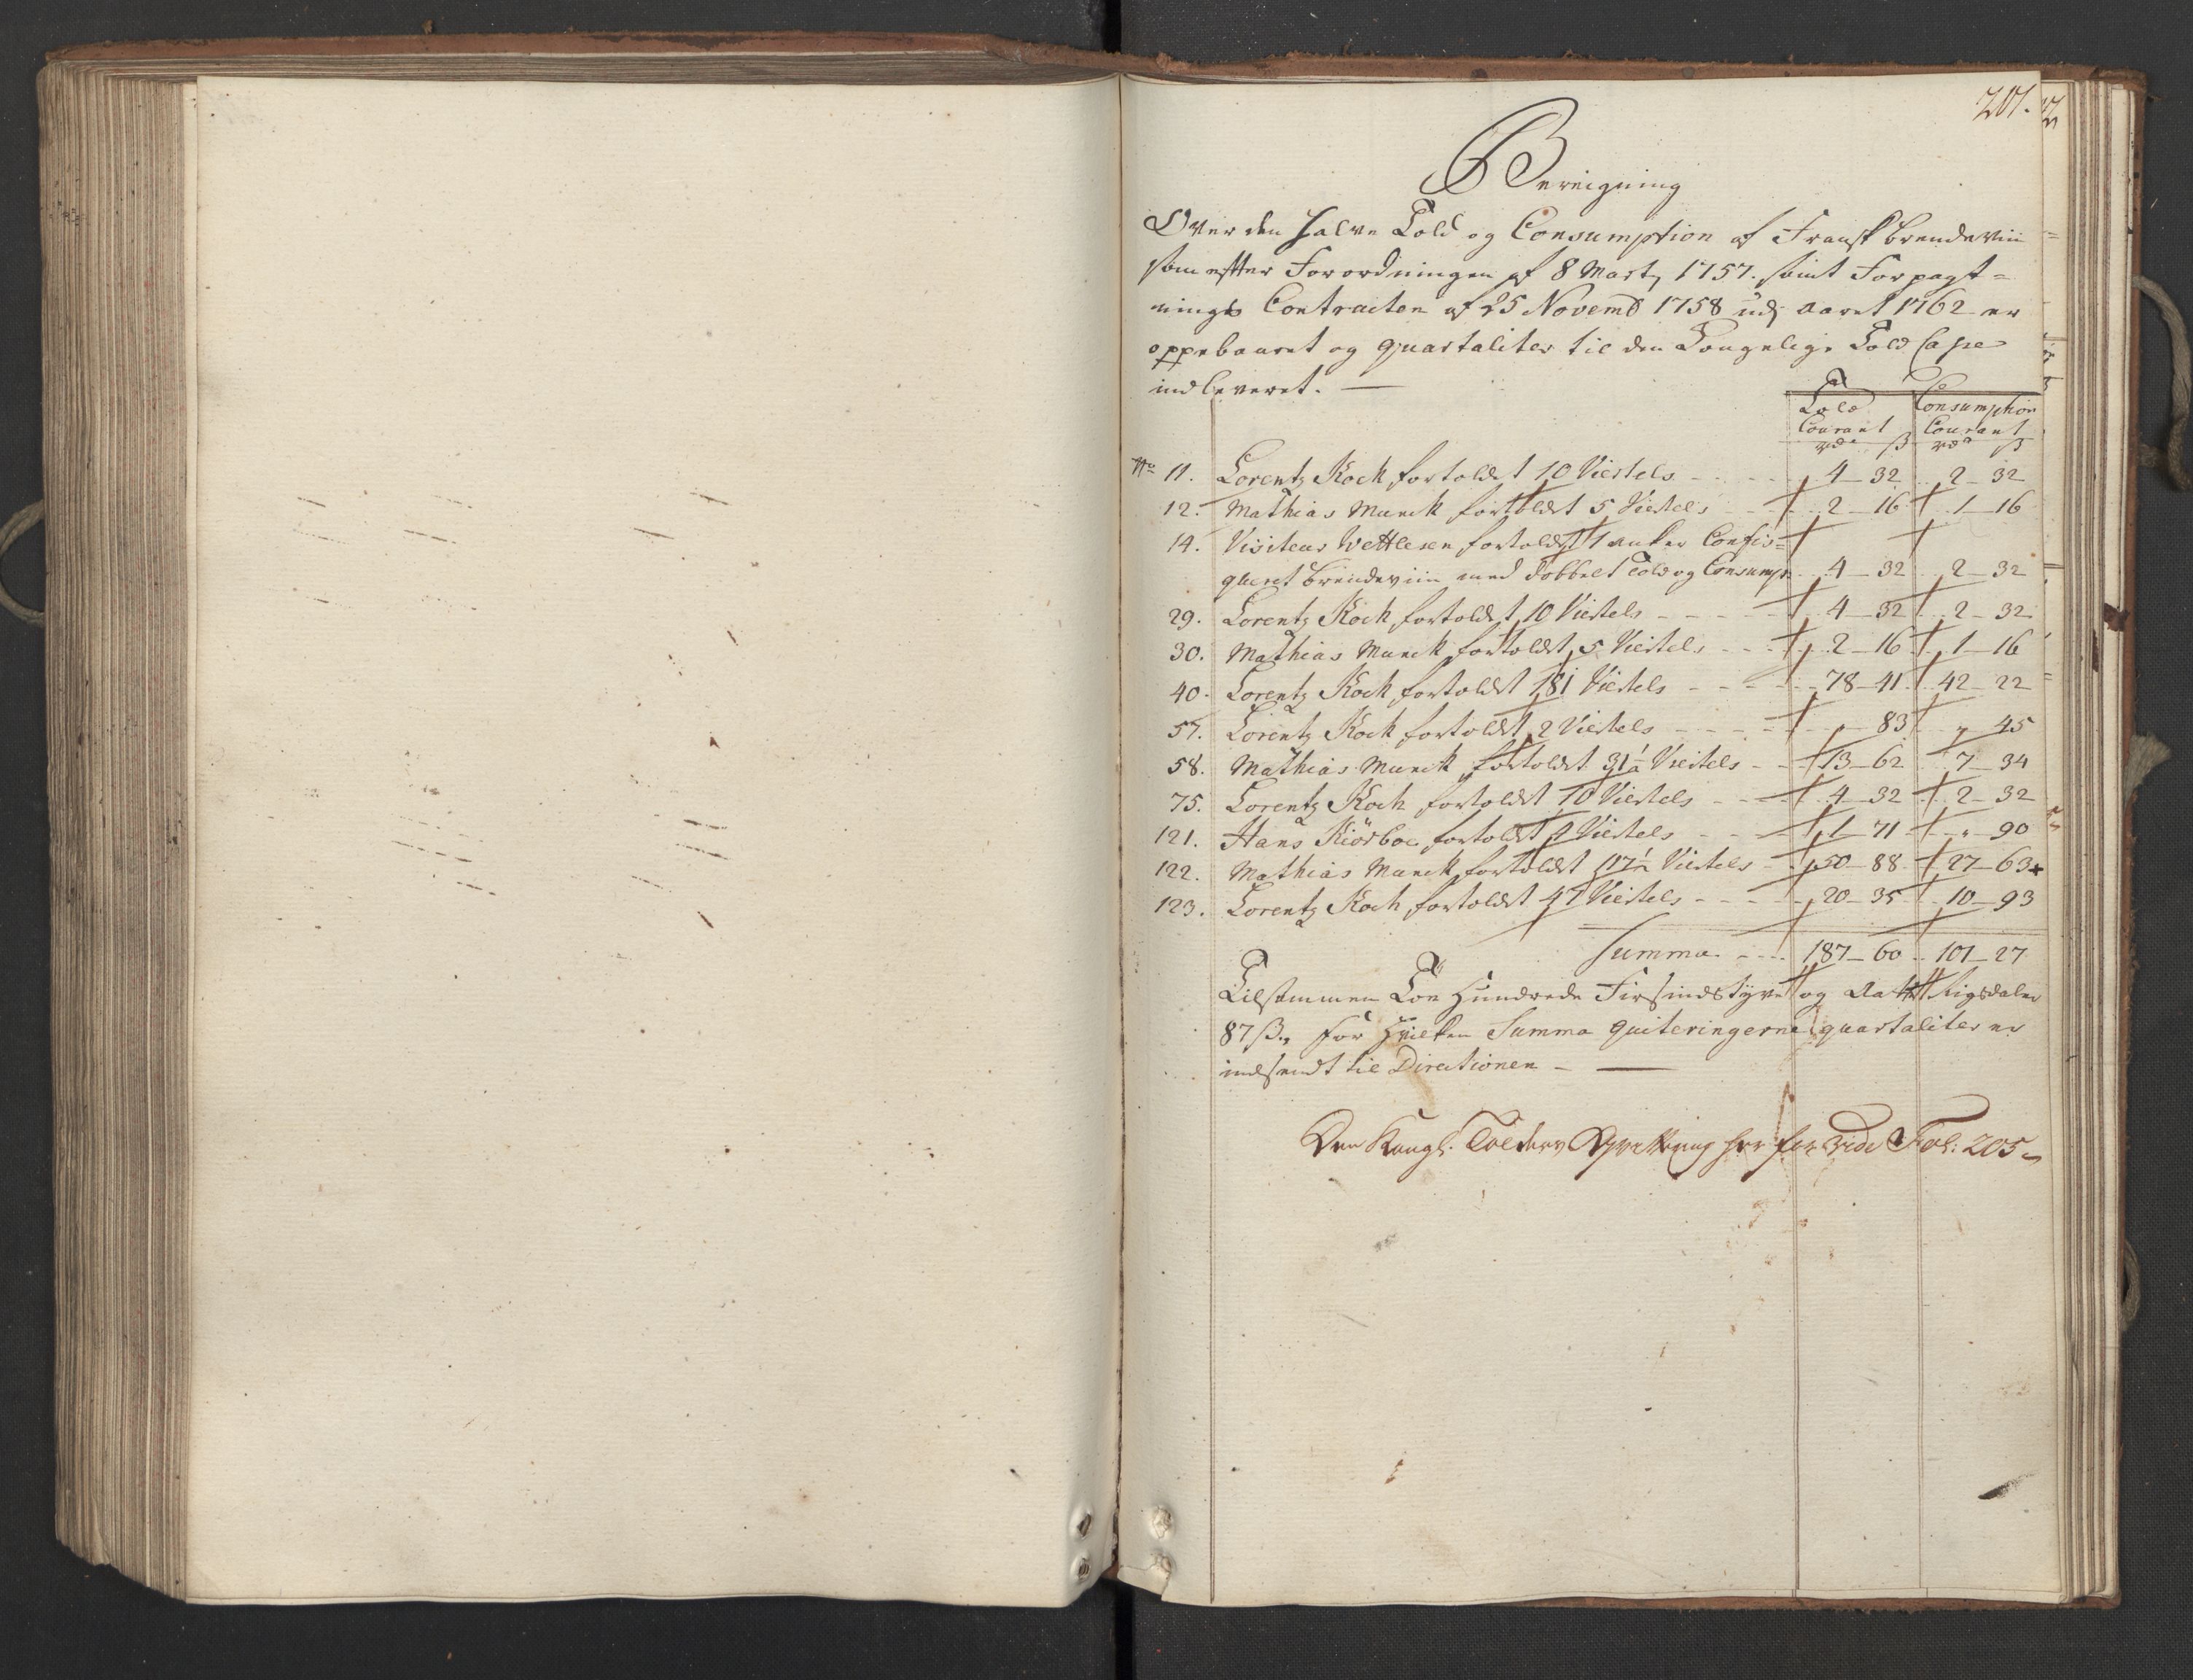 201.
Bereigning
Over den halve Told og Consumption af Fransk brendeviin
som efter Forordningen af 8 Marty 1757. samt Forpagt=
nings Contracten af 25 Novemb 1758 udj aaret 1762 er
oppebaaret og quartaliter til den Kongelige Told Casse
indleveret. —
Told Consumption
Courant Courant
rdr ß rdr ß
No 11. Lorentz Koch fortoldet 10 Viertels - - - 4 - 32 2 - 32
12. Mathias Munck fortoldet 5 Viertels - - 2 - 16 1 - 16
14. Visiteur Wettlesen fortoldet 1 anker Confis=
queret brendeviin med dobbelt Told og Consumpt. 4 - 32 2 - 32
29. Lorentz Koch fortoldet 10 Viertels - - - - 4 - 32 2 - 32
30. Mathias Munck fortoldet 5 Viertels - - - 2 - 16 1 - 16
40. Lorentz Koch fortoldet 181 Viertels - - - - 78 - 41 42 - 22
57. Lorentz Koch fortoldet 2 Viertels - - - - „ - 83 „ 45
58. Mathias Munck fortoldet 31 1/2 Viertels - - 13 - 62 7 - 34
75. Lorentz Koch fortoldet 10 Viertels - - - 4 - 32 2 - 32
121. Hans Kiörboe fortoldet 4 Viertels - - - 1 - 71 „ - 90
122. Mathias Munck fortoldet 117 1/2 Viertels - 50 - 88 27 - 63
123. Lorentz Koch fortoldet 47 Viertels - - - - 20 - 35 10 - 93
Summa - - - 187 - 60 101 - 27
Tilsammen Toe Hundrede Firsindstyve og Aatte Rigsdaler
87 ß., for hvilken Summa quiteringerne quartaliter er
indsendt til Directionen - —
Den Kongl. Tolders Qvittering her for vide Fol: 205